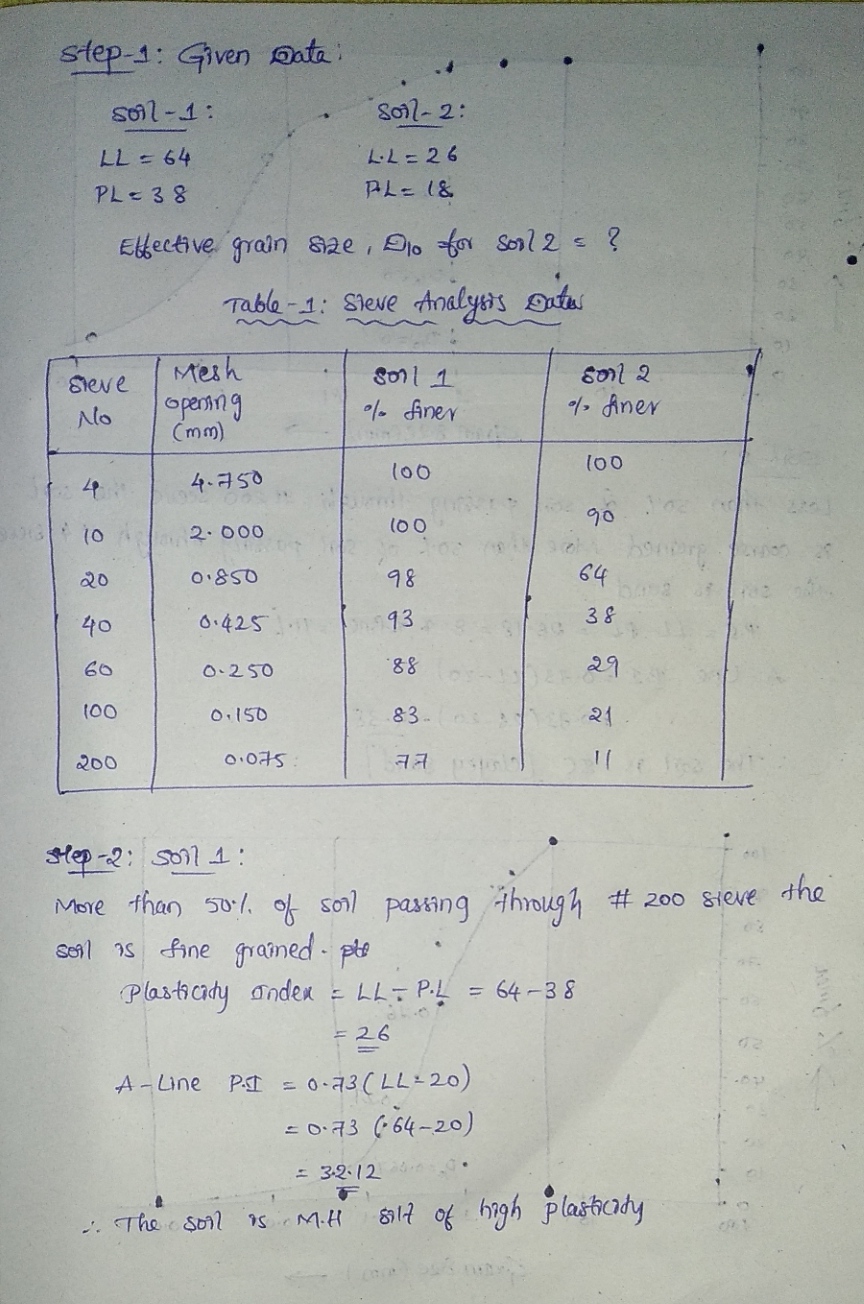 Step-1: Given Data:
Soil-1: Soil-2:
LL = 64 L.L = 26
PL = 38 P.L = 18
Effective grain size, D10 for soil 2 = ?
Table-1: Sieve Analysis Data
Sieve No Mesh opening (mm) Soil 1 % finer Soil 2 % finer
4 4.750 100 100
10 2.000 100 90
20 0.850 98 64
40 0.425 93 38
60 0.250 88 29
100 0.150 83 21
200 0.075 77 11
Step-2: Soil 1:
More than 50% of soil passing through # 200 sieve the
soil is fine grained.
Plasticity Index = LL - P.L = 64-38
= 26
A-Line P.I = 0.73(LL-20)
= 0.73 (64-20)
= 32.12
∴ The soil is M.H silt of high plasticity